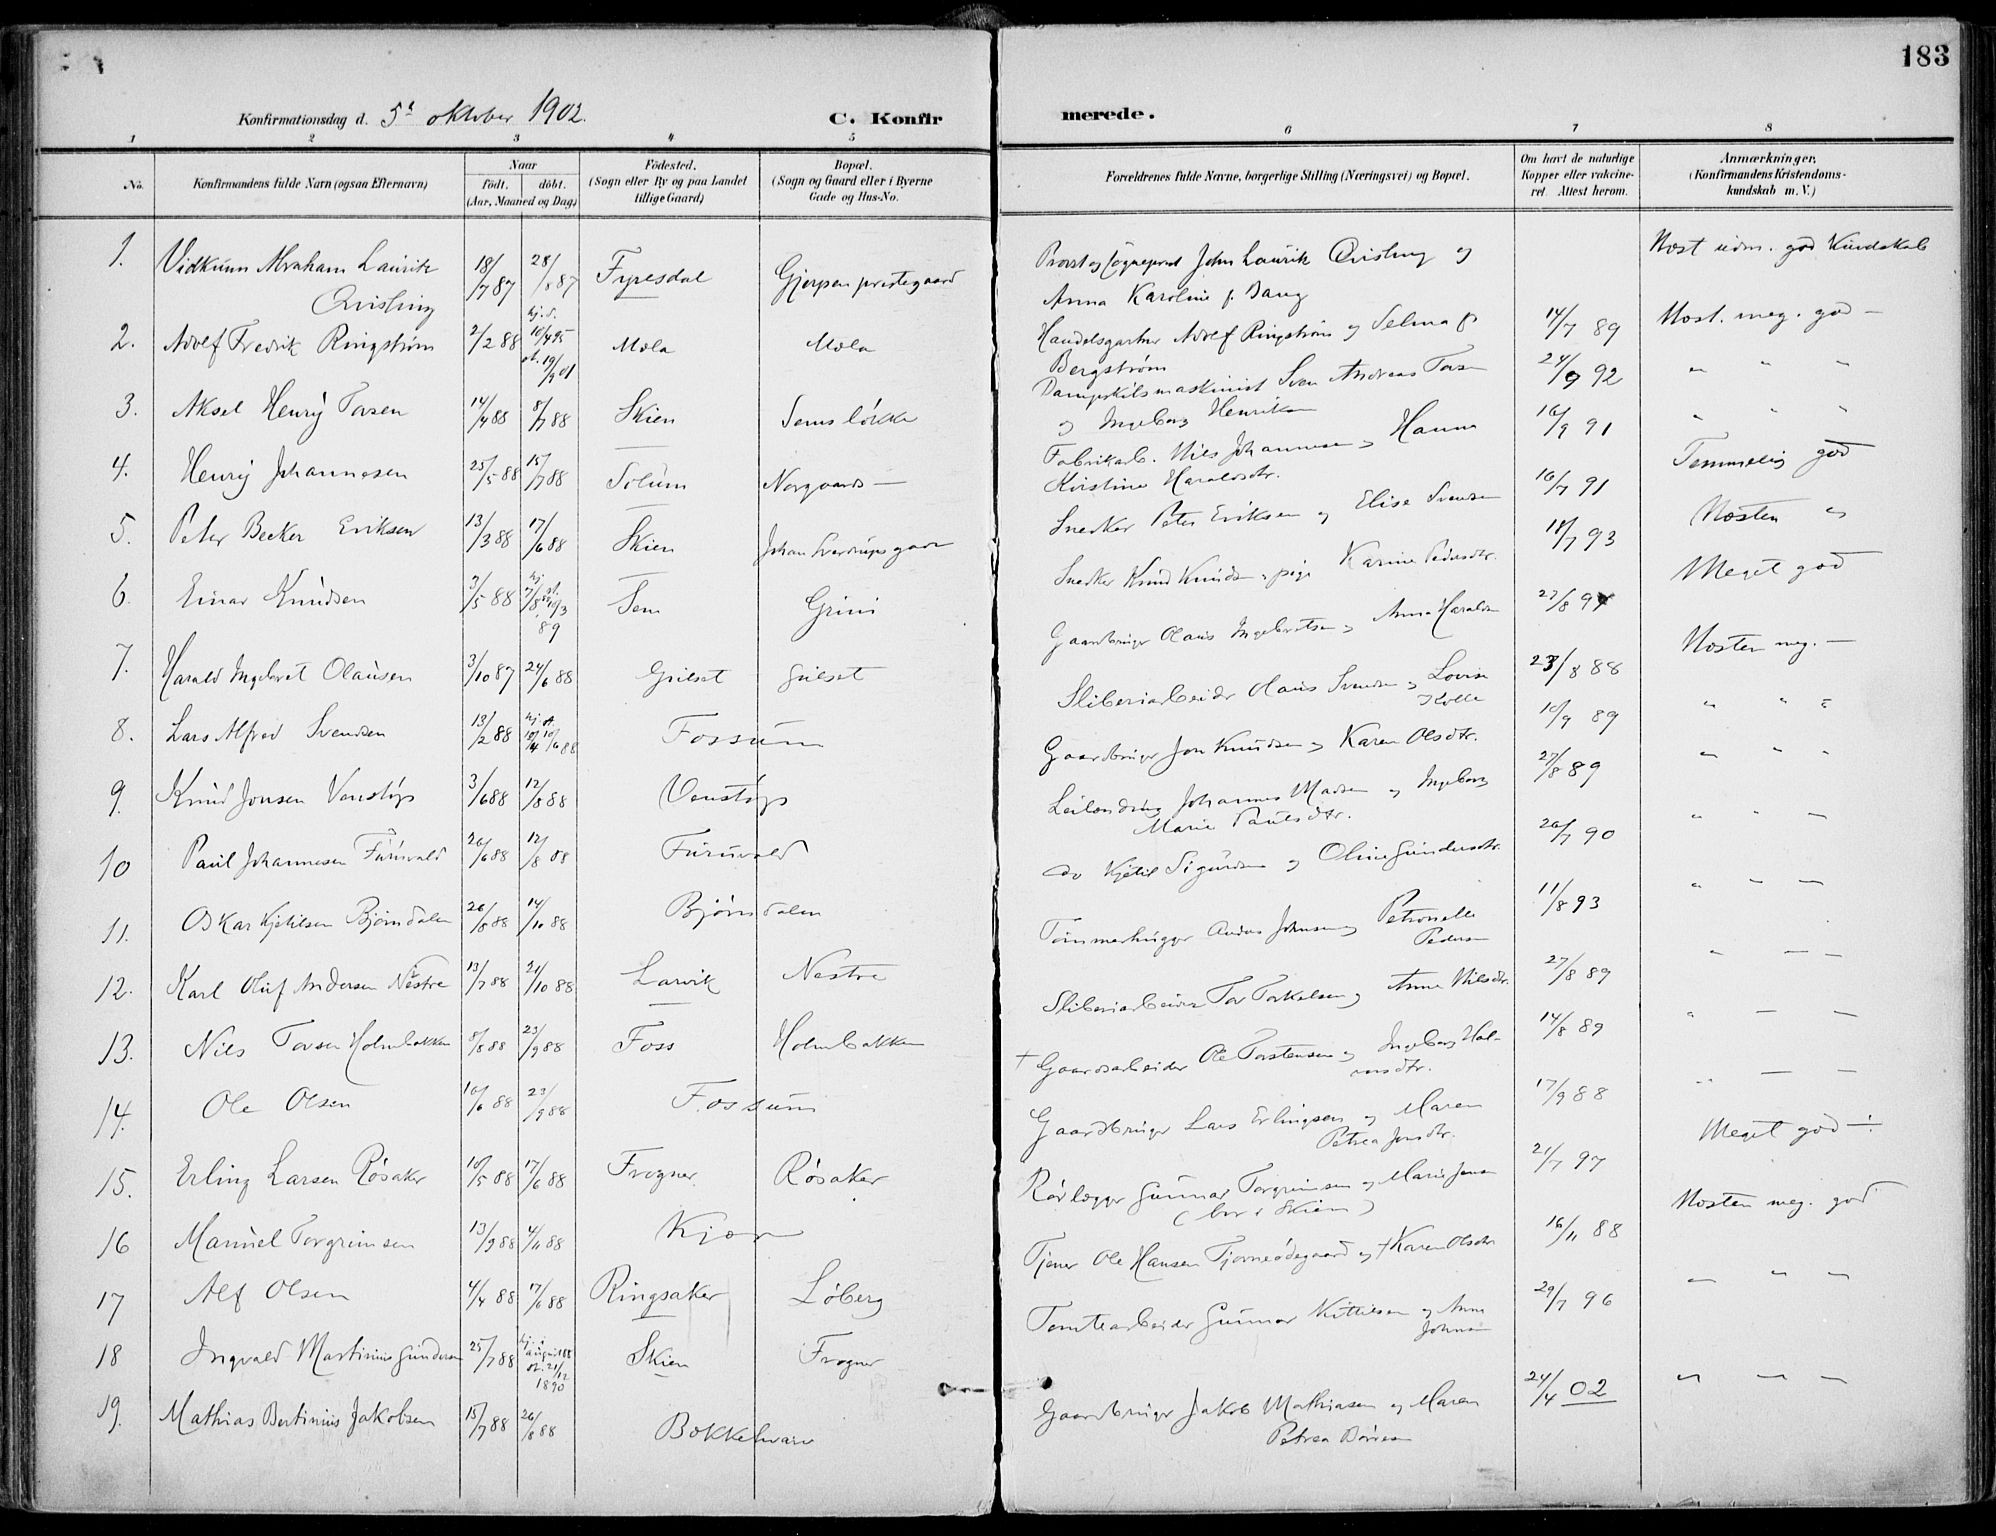 183
Konfirmationsdag d. 5te oktober 1902.
C. Konfirmerede.
1 2 3 4 5 6 7 8
No.
Konfirmandens fulde Navn (ogsaa Efternavn)
Naar
født. døbt.
(Aar, Maaned og Dag)
Fødested.
(Sogn eller By og paa Landet
tillige Gaard)
Bopæl.
(Sogn og Gaard eller i Byerne
Gade og Hus-No.
Forældrenes fulde Navne, borgerlige Stilling (Næringsvei) og Bopæl.
Om havt de naturlige
Kopper eller vakcine-
ret. Attest herom.
Anmærkninger.
(Konfirmandens Kristendoms-
kundskab m. V.)
1. Vidkunn Abraham Lauritz Qvisling 18/7 87 28/8 87 Fyresdal Gjerpen prestegaard Provst og Sogneprest John Laurik Qvisling og Anna Karoline f. Bang Mest udm. god Kundskab
2. Adolf Fredrik Ringstrøm 2/2 88 hj. d. 10/4 95 st. 19/9 01 Mæla Mæla Handelsgartner Adolf Ringstrøm og Selma f. Bergstrøm 14/7 89 Mest. meg. god —
3. Aksel Henry Torsen 14/4 88 8/7 88 Skien Sems løkke Sven Andreas Torsen og Ingeborg Henriksen 24/9 92 " " "
4. Henry Johannesen 25/5 88 15/7 88 Solum Norgaard — Fabrikarb. Nils Johannesen og Hanna Kristine Haraldsdtr. 16/9 91 " " "
5. Peter Becker Eriksen 13/3 88 17/6 88 Skien Johan Sverdrups gade Snedker Peter Eriksen og Elise Svendsen 16/7 91 Temmelig god
6. Einar Knudsen 3/5 88 Sem Grini Snedker Knud Knudsen, pige Karine Pedersdtr. 18/7 93 Næsten "
7. Harald Ingebret Olausen 3/10 87 24/6 88 Grilset Grilset Gaardbruger Olaus Ingebretsen og Anna Haralds 27/8 9 Meget god
8. Lars Alfred Svendsen 13/2 88 Fossum Sliberiarbeider Olaus Svendsen og Lovise 23/8 88 Næsten meg. —
9. Knud Jonsen Venstøp 3/6 88 12/8 88 Venstøp Gaardbruger Jon Knudsen og Karen Olsdtr. 10/9 89 " " "
10 Paul Johannesen Furuvald 26/6 88 12/8 88 Furuvald Leilænding Johannes Madsen og Ingeborg Marie Paulsdtr. 27/8 89 " " "
11. Oskar Kjetilsen Bjørndalen 26/8 88 14/10 88 Bjørndalen do Kjetil Sigurdsen og Oline Gundersdtr. 26/7 90 " " —
12. Karl Oluf Andersen Nestre 13/7 88 21/10 88 Larvik Nestre Tømmerhugger Anders Johnsen og Petronelle Pedersen 11/8 93 " — —
13. Nils Torsen Holmbakken 8/8 88 23/9 88 Foss Holmbakken Sliberiarbeider Tor Torkelsen og Anne Nilsdtr. 27/8 89 " — —
14. Ole Olsen 10/6 88 23/9 88 Fossum † Gaardsarbeider Ole Torstensen og Ingeborg Halvorsdtr. 14/8 89 " — —
15. Erling Larsen Røsaker 10/5 88 17/6 88 Frogner Røsaker Gaardbruger Lars Erlingsen og Maren Petrea Jonsdtr. 17/9 88 " — —
16 Manuel Torgrimsen 13/9 88 4/11 88 Kjær Rørlægger Gunnar Torgrimsen og Marie Jensen (bor i Skien) 21/7 97 Meget god —
17 Alf Olsen 4/4 88 17/6 88 Ringsaker Løberg Tjener Ole Hansen Tjorneødegaard og † Karen Olsdtr 16/11 88 Næsten meg. god
18 Ingvald Martinius Gundersen 25/7 88 hj. i august 88 st. 21/12 1890 Skien Frogner Tomtearbeider Gunnar Kittilsen og Anne Johnsen 29/7 96 — " —
19. Mathias Bertinius Jakobsen 15/7 88 26/8 88 Bøkkelvæien Gaardbruger Jakob Mathiasen og Maren Petrea 24/4 02 " — —